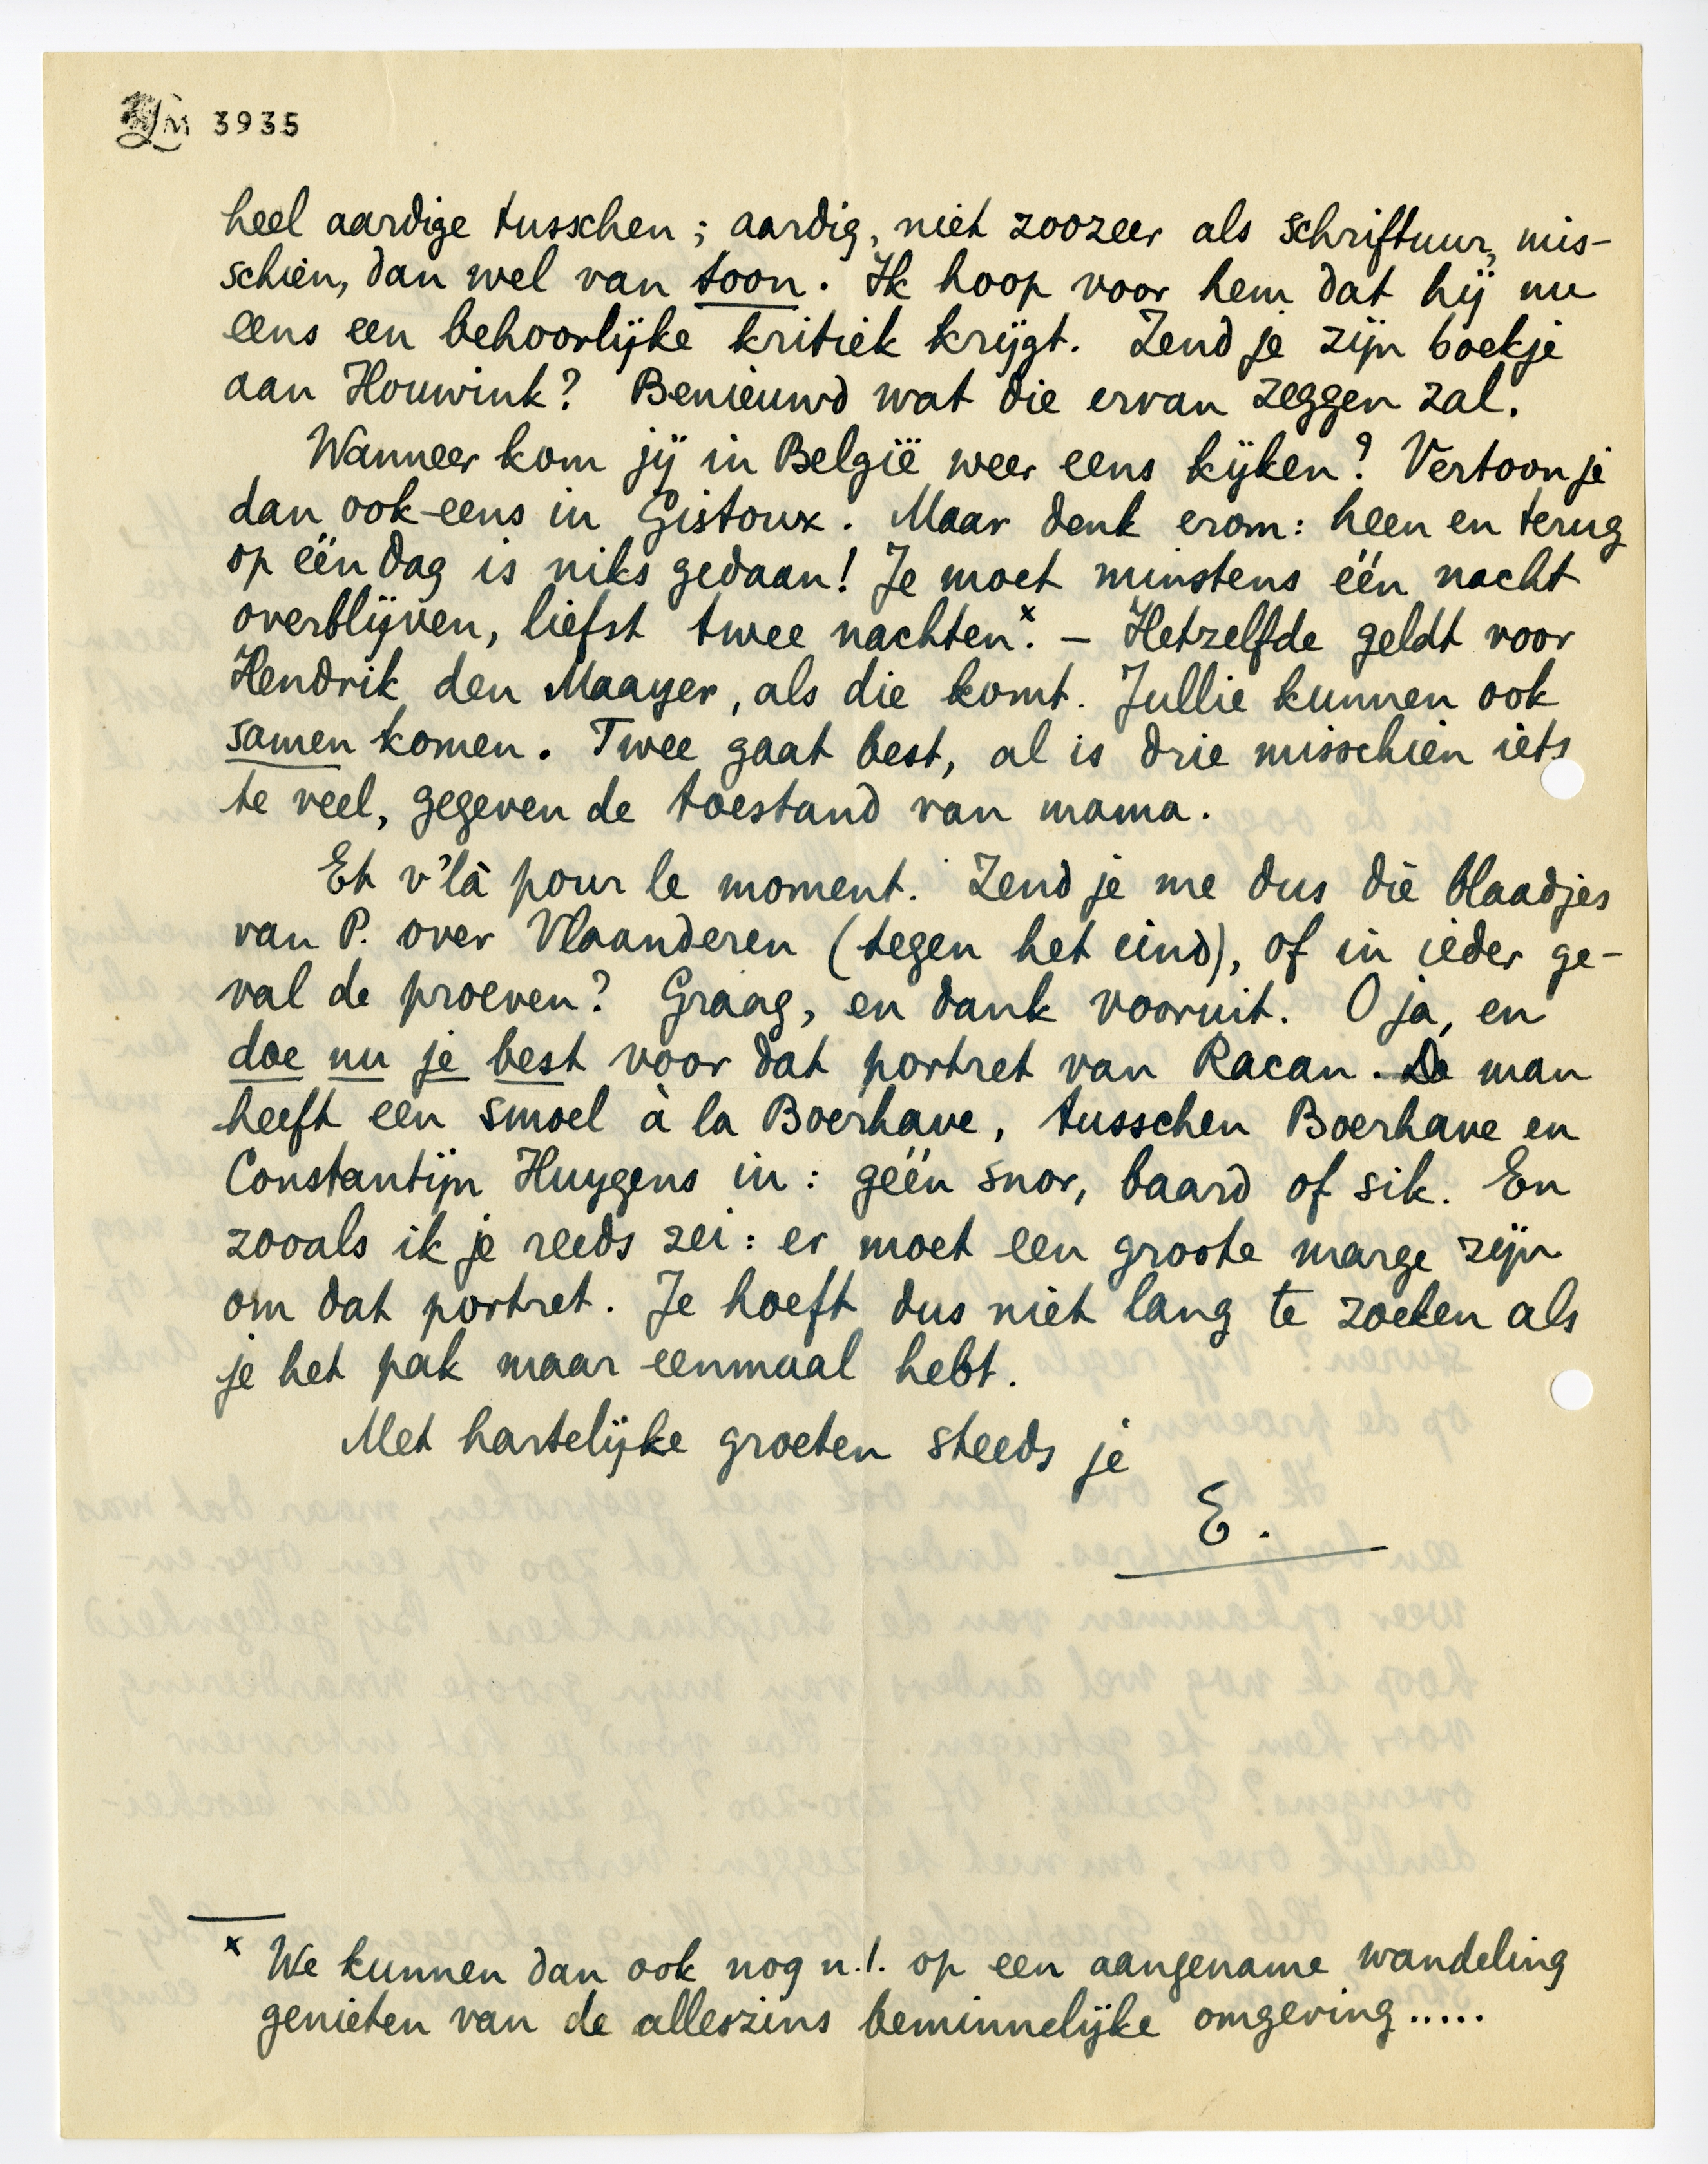 LM 3935
heel aardige tusschen; aardig, niet zoozeer als schriftuur, mis-
schien, dan wel van toon. Ik hoop voor hem dat hij nu
eens een behoorlijke kritiek krijgt. Zend je zijn boekje
aan Houwink? Benieuwd wat die ervan zeggen zal.
Wanneer kom jij in België weer eens kijken? Vertoon je
dan ook eens in Gistoux. Maar denk erom: heen en terug
op één dag is niks gedaan! Je moet minstens één nacht
overblijven, liefst twee nachten.x – Hetzelfde geldt voor
Hendrik den Maayer, als die komt. Jullie kunnen ook
samen komen. Twee gaat best, al is drie misschien iets
te veel, gegeven de toestand van mama.
Et v'là pour le moment. Zend je me dus die blaadjes
van P. over Vlaanderen (tegen het eind), of in ieder ge-
val de proeven? Graag, en dank vooruit. O ja, en
doe nu je best voor dat portret van Racan. De man
heeft een smoel à la Boerhave, tusschen Boerhave en
Constantijn Huygens in: géén snor, baard of sik. En
zooals ik je reeds zei: er moet een groote marge zijn
om dat portret. Je hoeft dus niet lang te zoeken als
je het pak maar eenmaal hebt.
Met hartelijke groeten steeds je
E.
x We kunnen dan ook nog n.l. op een aangename wandeling
genieten van de alleszins beminnelijke omgeving.....